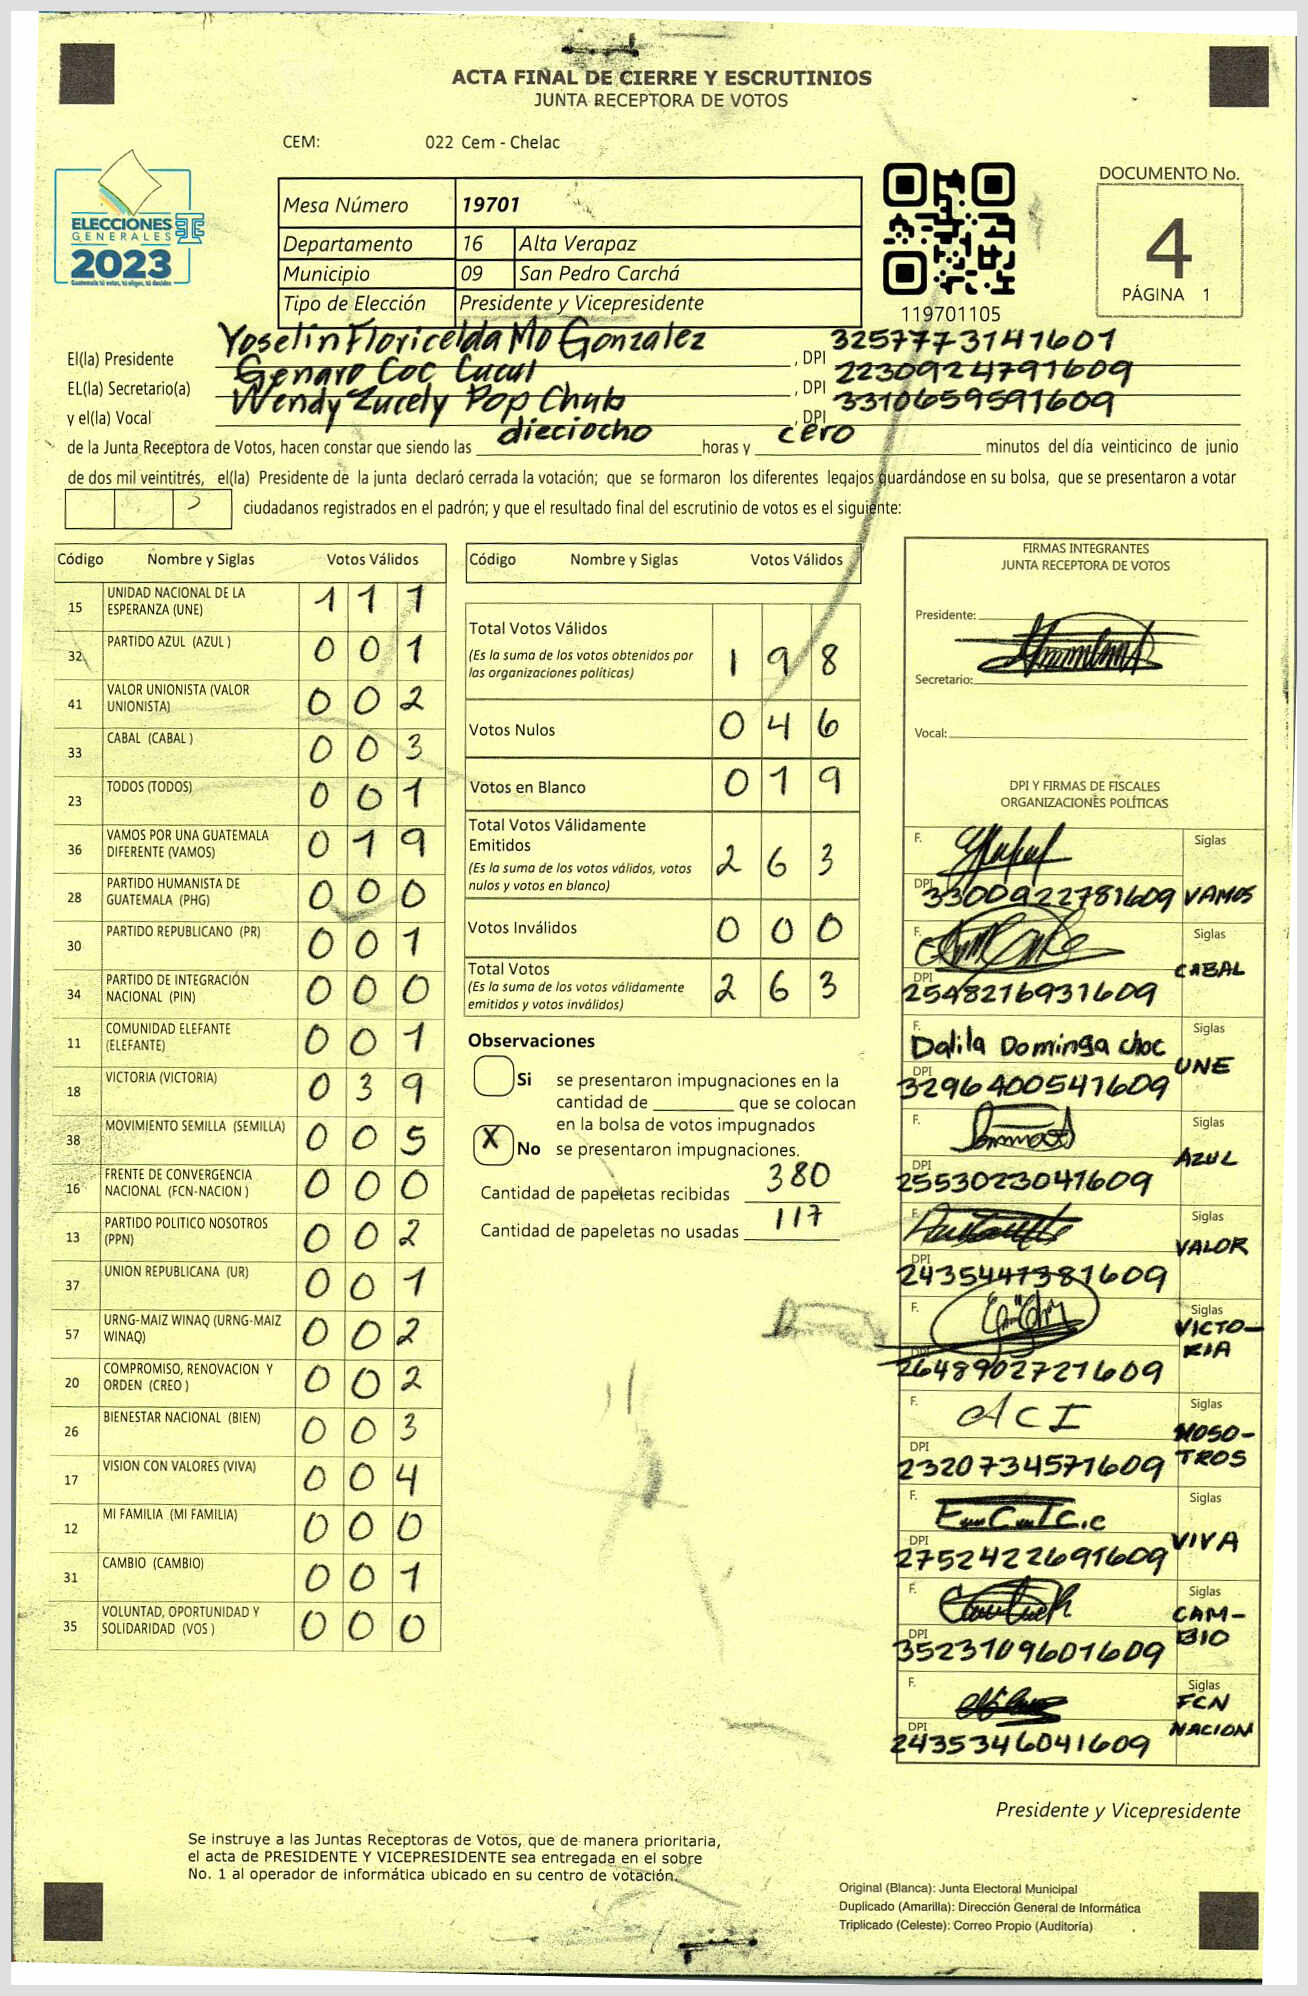 ACTA FINAL DE CIERRE Y ESCRUTINIOS
JUNTA RECEPTORA DE VOTOS
CEM: 022 Cem - Chelac
ELECCIONES
GENERALES
2023
Guatemala tú votas, tú eliges, tú decides
Mesa Número 19701
Departamento 16 Alta Verapaz
Municipio 09 San Pedro Carchá
Tipo de Elección Presidente y Vicepresidente
119701105
DOCUMENTO No.
4
PÁGINA 1
El(la) Presidente Yoselin Floricelda Mo Gonzalez , DPI 3257773141601
EL(la) Secretario(a) Genaro Coc Cucul , DPI 2230924791609
y el(la) Vocal Wendy Zucely Pop Chub , DPI 3310659591609
de la Junta Receptora de Votos, hacen constar que siendo las dieciocho horas y cero minutos del día veinticinco de junio
de dos mil veintitrés, el(la) Presidente de la junta declaró cerrada la votación; que se formaron los diferentes legajos guardándose en su bolsa, que se presentaron a votar
ciudadanos registrados en el padrón; y que el resultado final del escrutinio de votos es el siguiente:
Código Nombre y Siglas Votos Válidos
15 UNIDAD NACIONAL DE LA ESPERANZA (UNE) 1 1 1
32 PARTIDO AZUL (AZUL ) 0 0 1
41 VALOR UNIONISTA (VALOR UNIONISTA) 0 0 2
33 CABAL (CABAL ) 0 0 3
23 TODOS (TODOS) 0 0 1
36 VAMOS POR UNA GUATEMALA DIFERENTE (VAMOS) 0 1 9
28 PARTIDO HUMANISTA DE GUATEMALA (PHG) 0 0 0
30 PARTIDO REPUBLICANO (PR) 0 0 1
34 PARTIDO DE INTEGRACIÓN NACIONAL (PIN) 0 0 0
11 COMUNIDAD ELEFANTE (ELEFANTE) 0 0 1
18 VICTORIA (VICTORIA) 0 3 9
38 MOVIMIENTO SEMILLA (SEMILLA) 0 0 5
16 FRENTE DE CONVERGENCIA NACIONAL (FCN-NACION ) 0 0 0
13 PARTIDO POLITICO NOSOTROS (PPN) 0 0 2
37 UNION REPUBLICANA (UR) 0 0 1
57 URNG-MAIZ WINAQ (URNG-MAIZ WINAQ) 0 0 2
20 COMPROMISO, RENOVACION Y ORDEN (CREO ) 0 0 2
26 BIENESTAR NACIONAL (BIEN) 0 0 3
17 VISION CON VALORES (VIVA) 0 0 4
12 MI FAMILIA (MI FAMILIA) 0 0 0
31 CAMBIO (CAMBIO) 0 0 1
35 VOLUNTAD, OPORTUNIDAD Y SOLIDARIDAD (VOS ) 0 0 0
Código Nombre y Siglas Votos Válidos
Total Votos Válidos 1 9 8
(Es la suma de los votos obtenidos por
las organizaciones políticas)
Votos Nulos 0 4 6
Votos en Blanco 0 1 9
Total Votos Válidamente
Emitidos 2 6 3
(Es la suma de los votos válidos, votos
nulos y votos en blanco)
Votos Inválidos 0 0 0
Total Votos 2 6 3
(Es la suma de los votos válidamente
emitidos y votos inválidos)
Observaciones
Si se presentaron impugnaciones en la
cantidad de ________ que se colocan
en la bolsa de votos impugnados
X No se presentaron impugnaciones.
Cantidad de papeletas recibidas 380
Cantidad de papeletas no usadas 117
FIRMAS INTEGRANTES
JUNTA RECEPTORA DE VOTOS
Presidente:
Secretario:
Vocal:
DPI Y FIRMAS DE FISCALES
ORGANIZACIONES POLÍTICAS
F. Siglas
DPI 3300922781609 VAMOS
F. Siglas
DPI 2548216931609 CABAL
F. Dalila Dominga choc Siglas
DPI 3296400541609 UNE
F. Siglas
DPI 2553023041609 AZUL
F. Siglas
DPI 2435447381609 VALOR
F. Siglas
DPI 2648902721609 VICTO-
RIA
F. ACI Siglas
DPI 2320734571609 NOSO-
TROS
F. Siglas
DPI 2752422691609 VIVA
F. Siglas
DPI 3523109601609 CAM-
BIO
F. Siglas
DPI 2435346041609 FCN
NACION
Presidente y Vicepresidente
Se instruye a las Juntas Receptoras de Votos, que de manera prioritaria,
el acta de PRESIDENTE Y VICEPRESIDENTE sea entregada en el sobre
No. 1 al operador de informática ubicado en su centro de votación.
Original (Blanca): Junta Electoral Municipal
Duplicado (Amarilla): Dirección General de Informática
Triplicado (Celeste): Correo Propio (Auditoría)